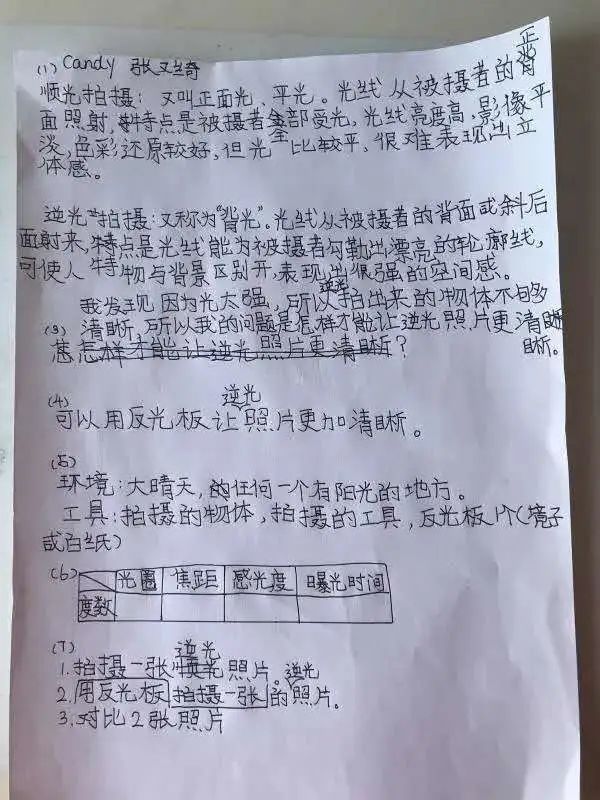 (1) Candy 张又绮
正背
顺光拍摄：又叫正面光、平光。光线从被摄者的
面照射，特点是被摄者全部受光，光线亮度高，影像平
淡，色彩还原较好，但光比较平，很难表现出立
体感。
逆光拍摄：又称为“背光”。光线从被摄者的背面或斜后
面射来，特点是光线能为被摄者勾勒出漂亮的轮廓线，
可使人物与背景区别开，表现出很强的空间感。
逆光
我发现因为光太强，所以拍出来的物体不够
(3) 清晰，所以我的问题是怎样才能让逆光照片更清晰
怎样才能让逆光照片更清晰？ 晰。
(4) 逆光
可以用反光板让照片更加清晰。
(5)
环境：大晴天，的任何一个有阳光的地方。
工具：拍摄的物体，拍摄的工具，反光板1个（镜子
或白纸）
(6) 光圈 焦距 感光度 曝光时间
度数
(7) 逆光
1.拍摄一张顺光照片。逆光
2.用反光板拍摄一张的照片。
3.对比2张照片